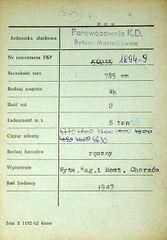 505
PKP
Jednostka służbowa
Parowozownia K.D.
Bytom Maciejkowice
Nr inwentarza PKP
1894-9
Szerokość toru
785 mm
Rodzaj wagonu
Wh
Ilość osi
2
Ładowność w t.
8 ton
Ciężar własny
Rodzaj hamulca
ręczny
Wytwórnia
Wytw. Wag. i Most. Chorzów
Rok budowy
1947